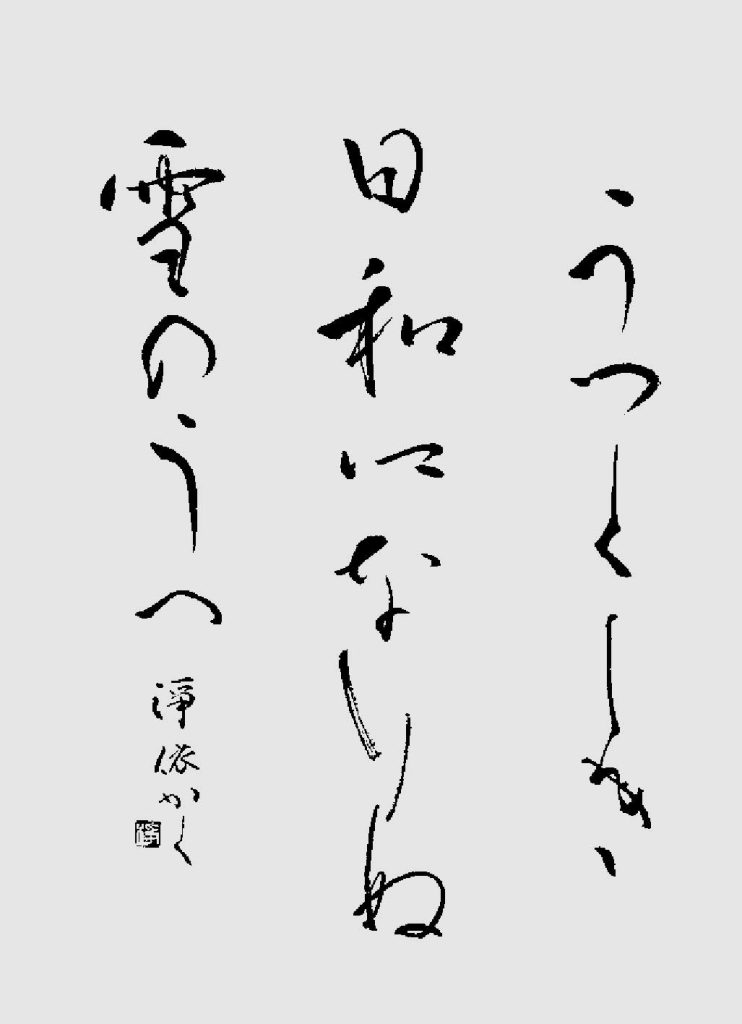 うつくしき
日和になりぬ
雪のうへ
淨依かく